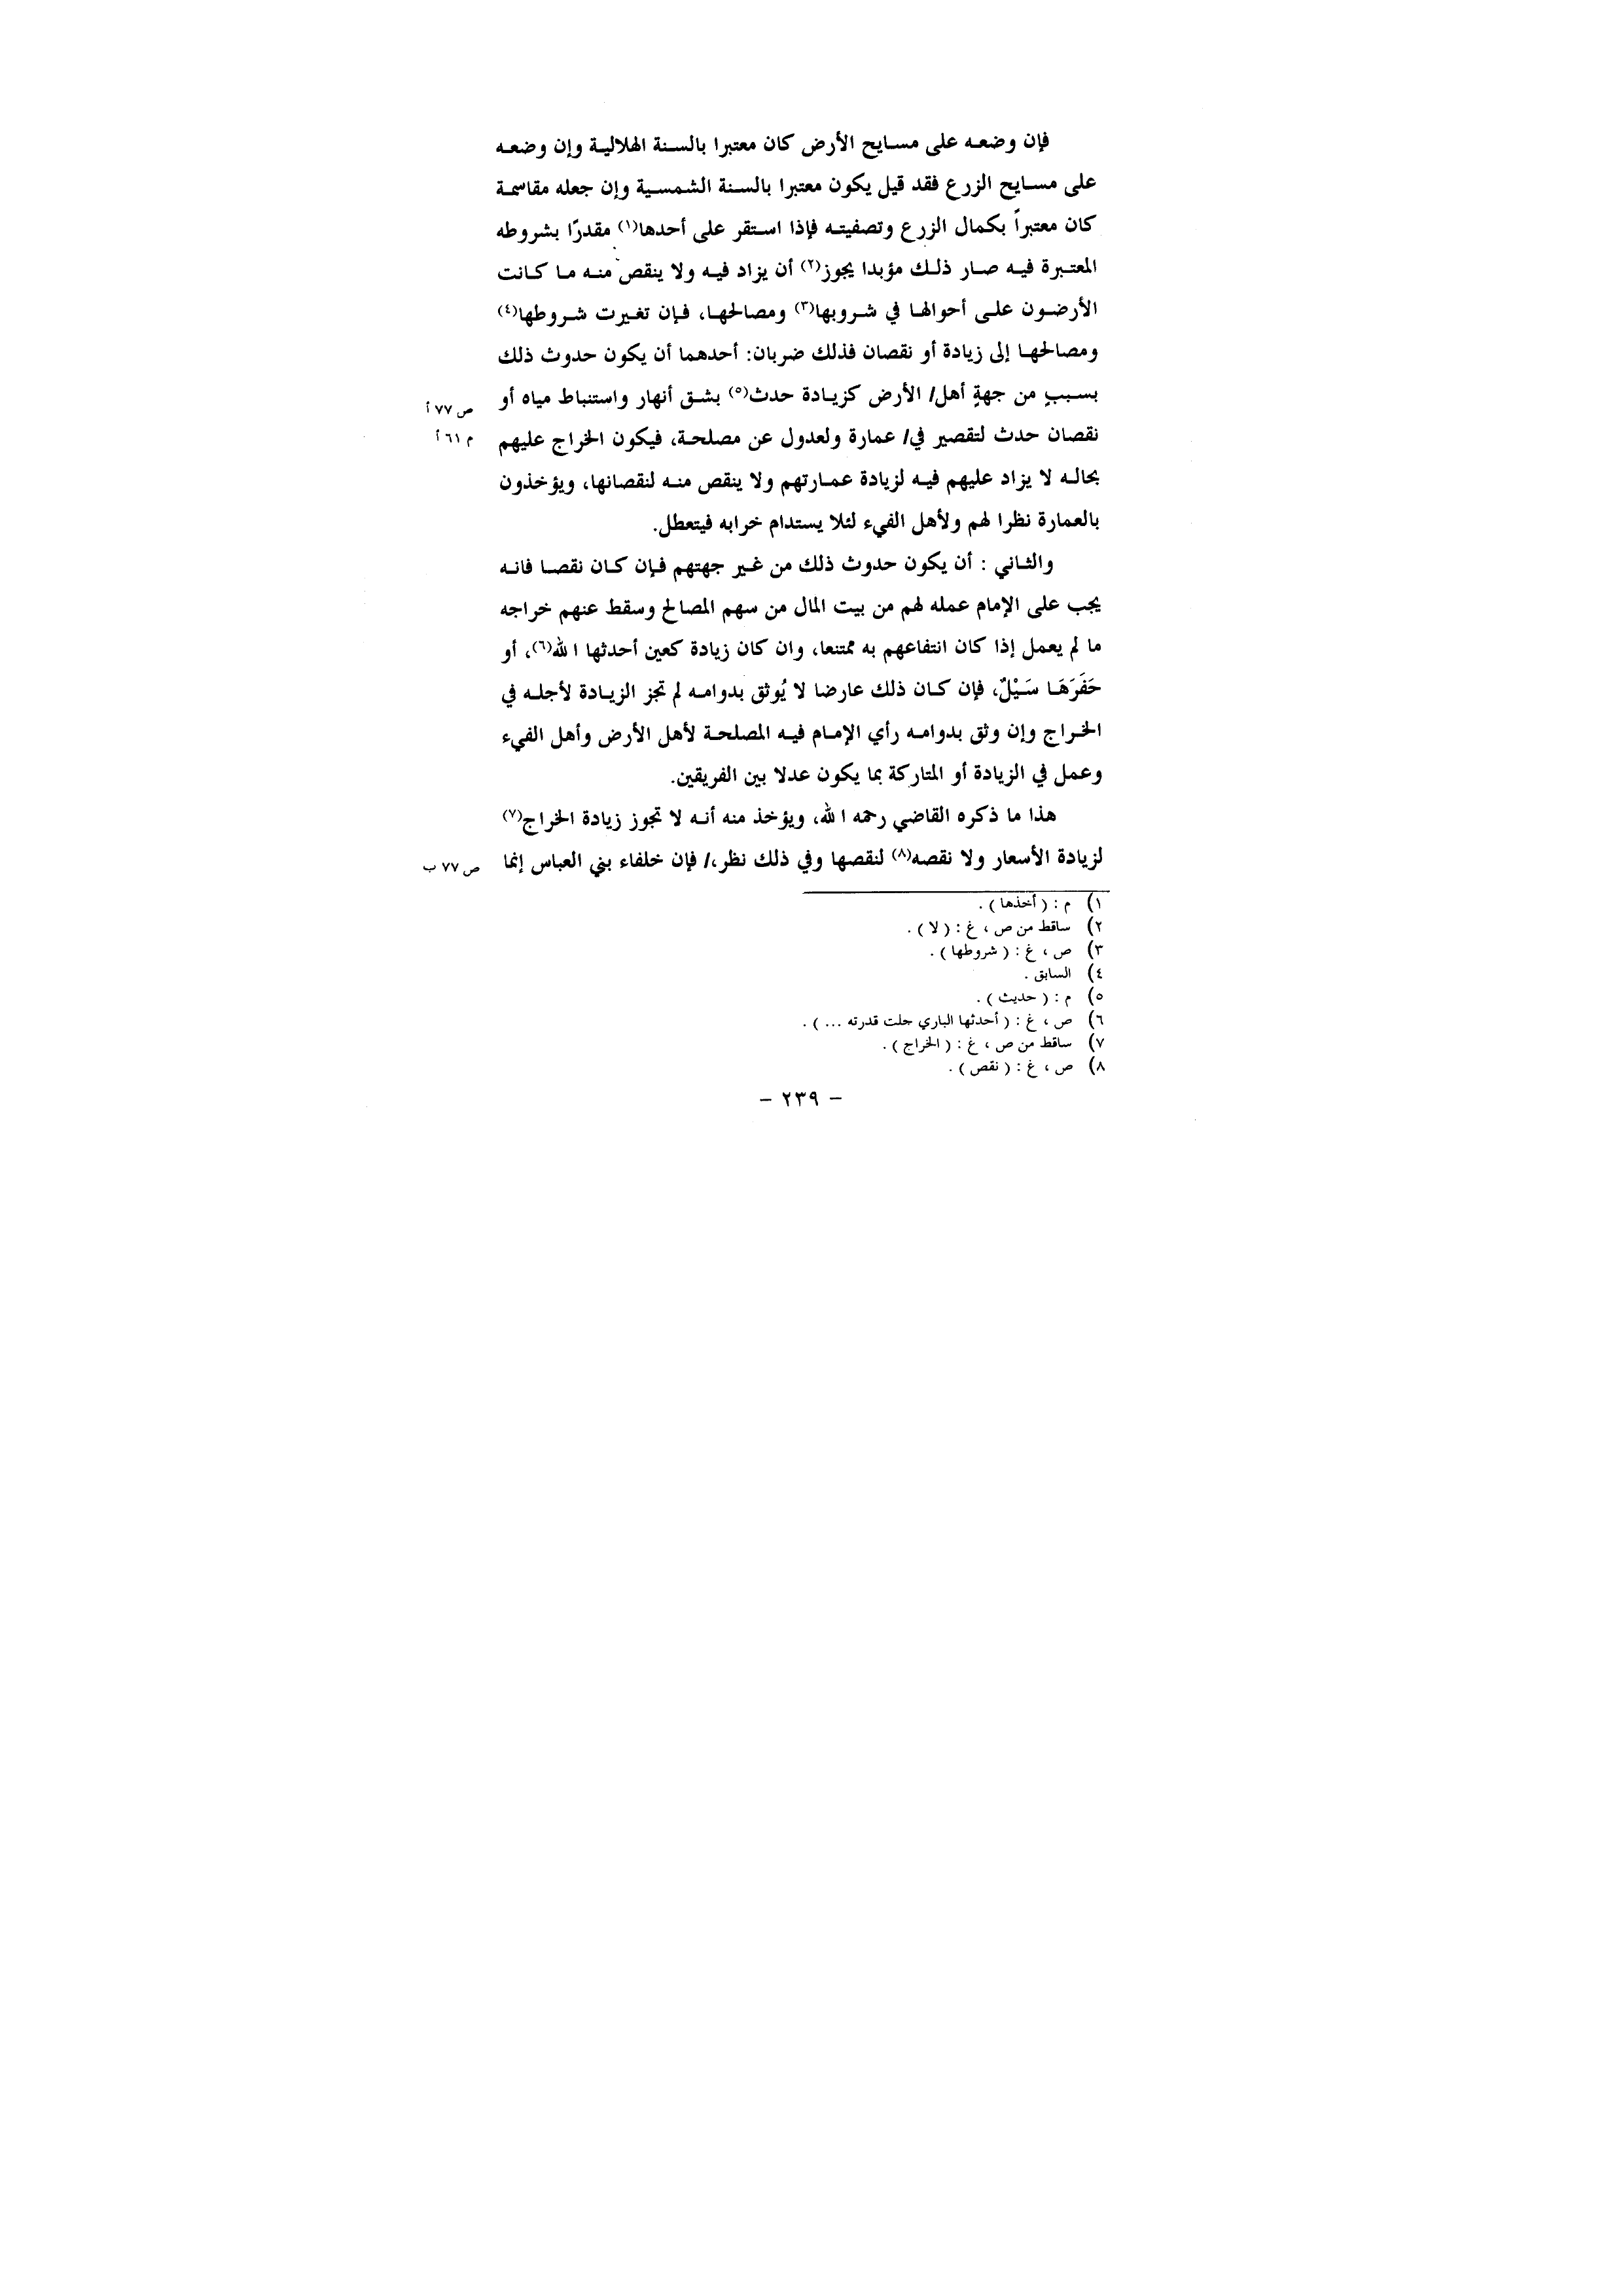 فإن وضعه على مسايح الأرض كان معتبرا بالسنة الهلالية وإن وضعه
على مسايح الزرع فقد قيل يكون معتبرا بالسنة الشمسية وإن جعله مقاسمة
كان معتبراً بكمال الزرع وتصفيته فإذا استقر على أحدها(١) مقدرًا بشروطه
المعتبرة فيه صار ذلك مؤبدا يجوز(٢) أن يزاد فيه ولا ينقص منه ما كانت
الأرضون على أحوالها في شروبها(٣) ومصالحها، فإن تغيرت شروطها(٤)
ومصالحها إلى زيادة أو نقصان فذلك ضربان: أحدهما أن يكون حدوث ذلك
بسببٍ من جهةٍ أهل/ الأرض كزيادة حدث(٥) بشق أنهار واستنباط مياه أو
ص ٧٧ أ
نقصان حدث لتقصير في/ عمارة ولعدول عن مصلحة، فيكون الخراج عليهم
م ٦١ أ
بحاله لا يزاد عليهم فيه لزيادة عمارتهم ولا ينقص منه لنقصانها، ويؤخذون
بالعمارة نظرا لهم ولأهل الفيء لئلا يستدام خرابه فيتعطل.
والثاني : أن يكون حدوث ذلك من غير جهتهم فإن كان نقصا فانه
يجب على الإمام عمله لهم من بيت المال من سهم المصالح وسقط عنهم خراجه
ما لم يعمل إذا كان انتفاعهم به ممتنعا، وان كان زيادة كعين أحدثها الله(٦)، أو
حَفَرَهَا سَيْلٌ، فإن كان ذلك عارضا لا يُوثق بدوامه لم تجز الزيادة لأجله في
الخراج وإن وثق بدوامه رأي الإمام فيه المصلحة لأهل الأرض وأهل الفيء
وعمل في الزيادة أو المتاركة بما يكون عدلا بين الفريقين.
هذا ما ذكره القاضي رحمه الله، ويؤخذ منه أنه لا تجوز زيادة الخراج(٧)
لزيادة الأسعار ولا نقصه(٨) لنقصها وفي ذلك نظر،/ فإن خلفاء بني العباس إنما
ص ٧٧ ب
١) م : ( أخذها ) .
٢) ساقط من ص ، غ : ( لا ) .
٣) ص ، غ : ( شروطها ) .
٤) السابق .
٥) م : ( حديث ) .
٦) ص ، غ : ( أحدثها الباري جلت قدرته ... ) .
٧) ساقط من ص ، غ : ( الخراج ) .
٨) ص ، غ : ( نقص ) .
- ٢٣٩ -